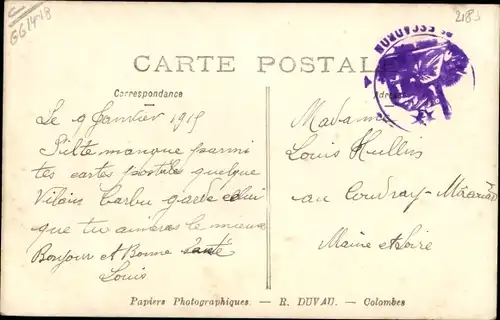 GG14-18
218s
CARTE POSTALE
ESCADRON
Correspondance
Adresse
Le 9 Janvier 1915
S'il te manque parmi
tes cartes postale quelque
Vilain Barbu garde celui
que tu aimeras le mieux
Bonjour et Bonne Santé
Louis
Madame
Louis Hullin
au Coudray-Macouard
Maine et Loire
Papiers Photographiques. — R. DUVAU. — Colombes